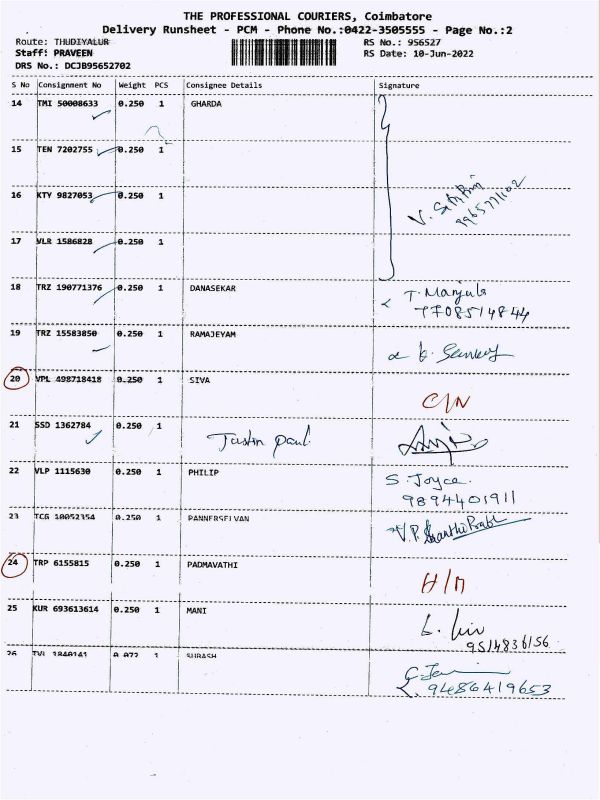 THE PROFESSIONAL COURIERS, Coimbatore
Delivery Runsheet - PCM - Phone No.:0422-3505555 - Page No.:2
Route: THUDIYALUR RS No.: 956527
Staff: PRAVEEN RS Date: 10-Jun-2022
DRS No.: DCJB95652702
S No Consignment No Weight PCS Consignee Details Signature
14 TMI 50008633 0.250 1 GHARDA
15 TEN 7202755 0.250 1
16 KTY 9827053 0.250 1
17 VLR 1586828 0.250 1
18 TRZ 190771376 0.250 1 DANASEKAR T. Manjula
7708514844
19 TRZ 15583850 0.250 1 RAMAJEYAM
20 VPL 498718418 0.250 1 SIVA C/N
21 SSD 1362784 0.250 1 Justin Paul
22 VLP 1115630 0.250 1 PHILIP S. Joyce
9894401911
23 TCG 10052354 0.250 1 PANNERSELVAN V.P. Shanthi Prabha
24 TRP 6155815 0.250 1 PADMAVATHI H/M
25 KUR 693613614 0.250 1 MANI
9514836156
26 TVL 1840141 0.072 1 SUBASH
9486419653